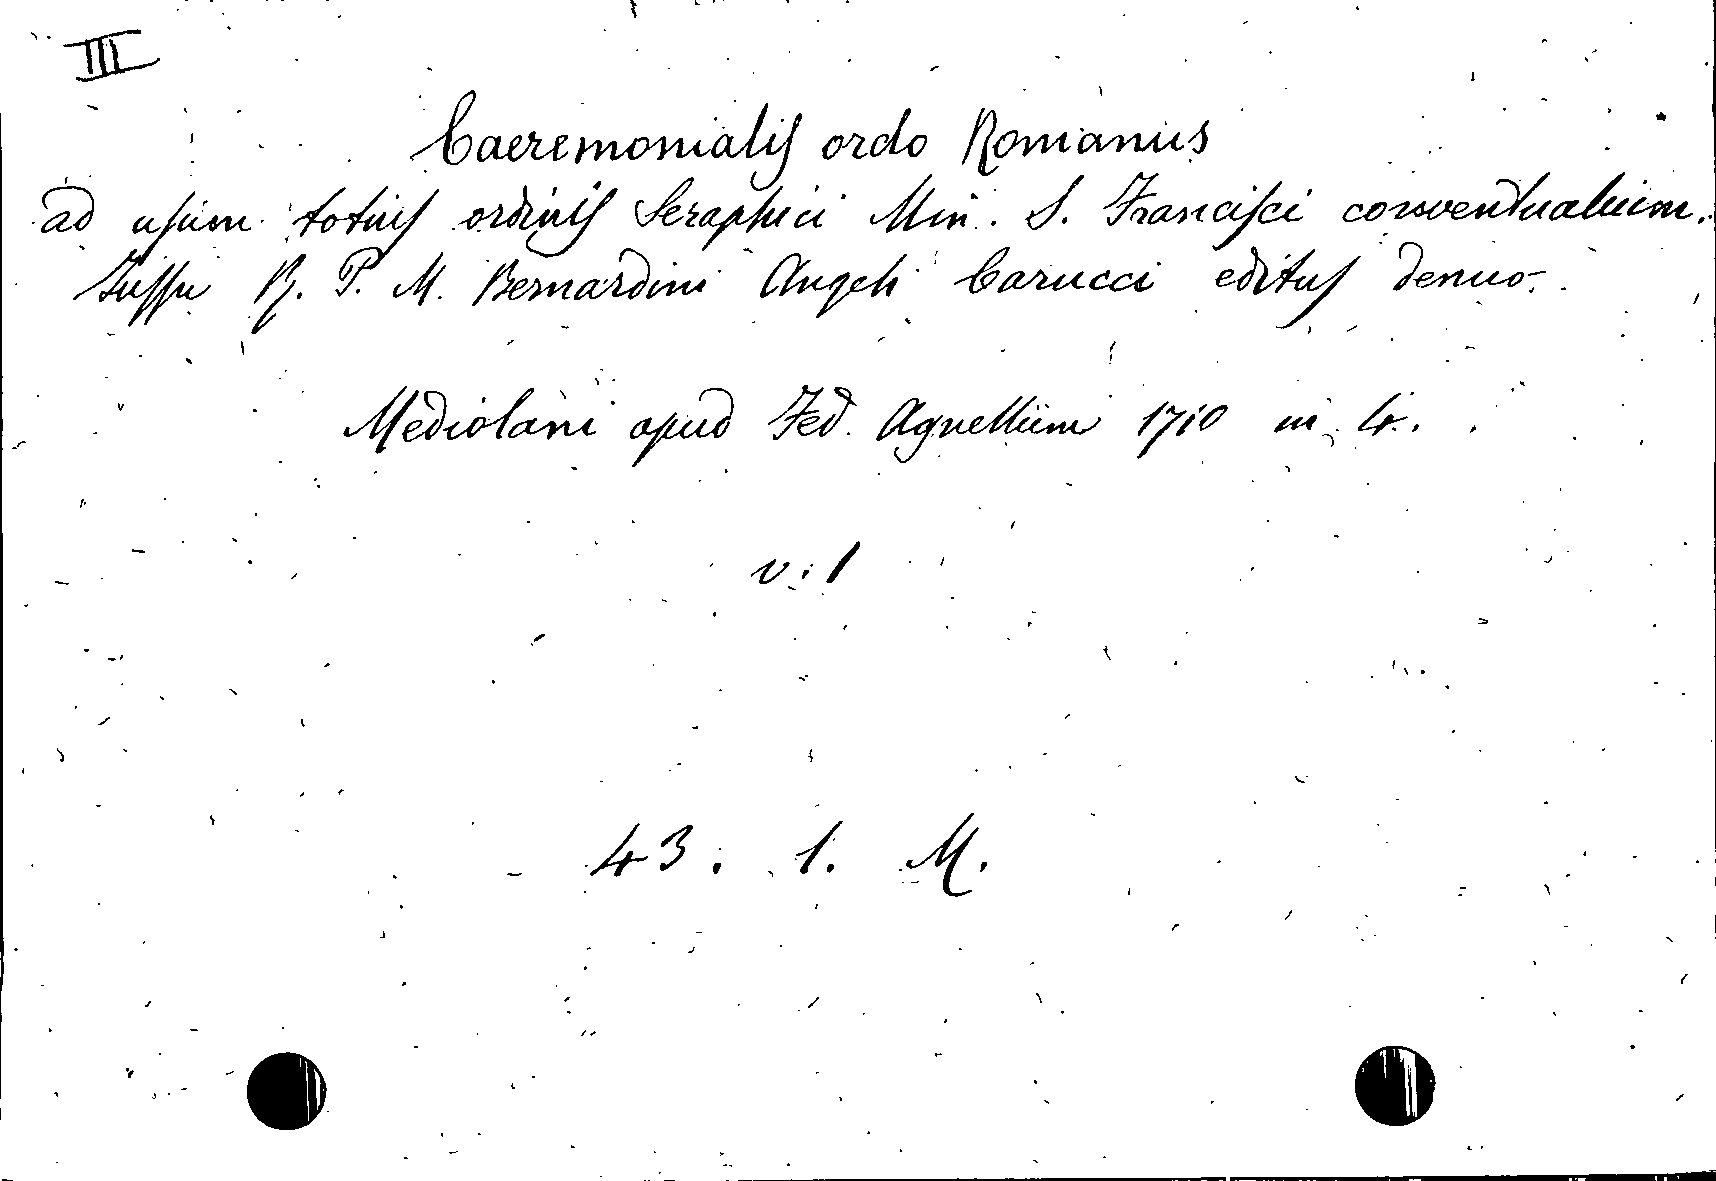 III
Caeremonialis ordo Romanus
ad usum totius ordinis Seraphici Min. S. Francisci conventualium.
Jussu R. P. M. Bernardini Angeli Carucci editus denuo.
Mediolani apud Fed. Agnellium 1710 in 4.
v. 1
43. 1. M.